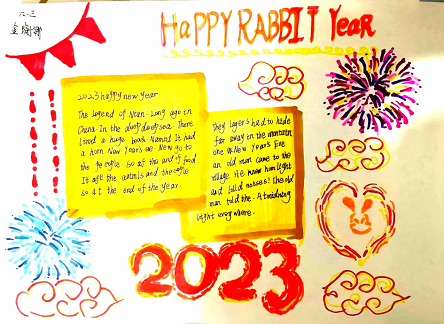 六.三
HAPPY RABBIT YEAR
2023 happy new year
The legend of Nian. Long ago in
China. In the deep deep sea. There
lived a huge beast Named It had
a horn New Year's Eve New go to
the people. So at the end of food
It ate the and people
So at the end of the year.
They layers had to hide
far away in the mountain
one of New Year's Eve
an old man came to the
village. He knew him light
and loud noises! The old
man told the. A midnight
light everywhere.
2023